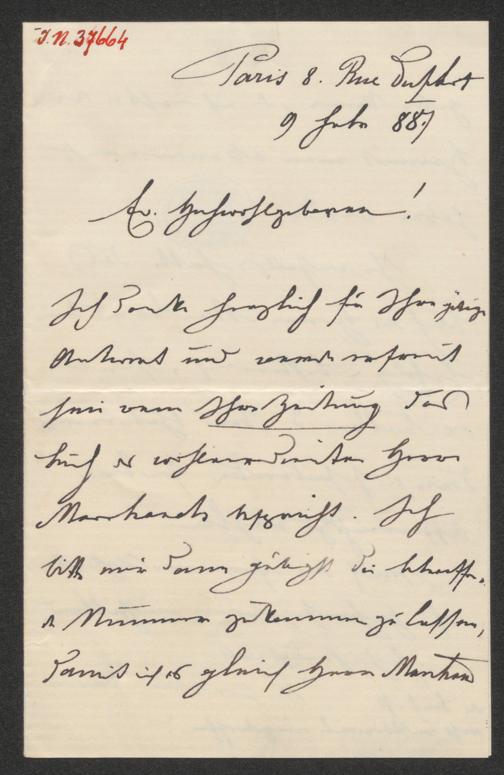 J.N. 37664
Paris 8. Rue
9 Febr 887
Ew. Hochwohlgeboren!
Ich danke herzlich für Ihre gütige
Antwort und werde erfreut
sein wenn Ihre Zeitung das
Buch des Herrn
Marchands bespricht. Ich
bitte mir dann gütigst die betreffen-
de Nummer zukommen zu lassen,
damit ich es gleich Herrn Marchand